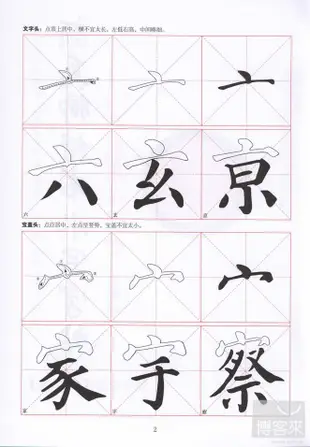 文字头：点居上居中，横不宜太长，左低右高，中间略细。
亠 亠 亠
六 玄 亰
六 玄
宝盖头：点点居中，左点呈竖势，宝盖不宜太小。
宀 宀 宀
家 宇 察
家 宇 察
2
博客來